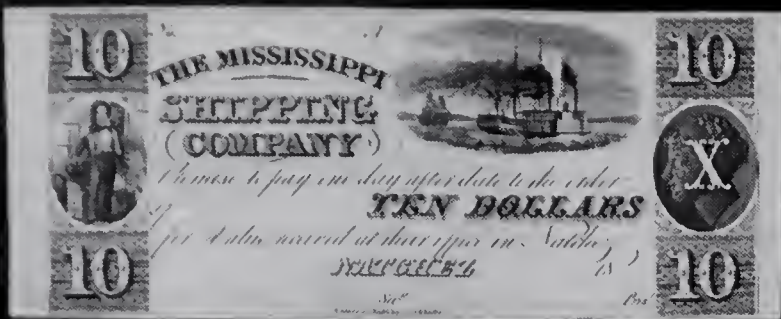 10 10
THE MISSISSIPPI
SHIPPING
(COMPANY)
Promise to pay one day after date to the order
X
of TEN DOLLARS
for value received at their office in Natchez
NATCHEZ 18
10 10